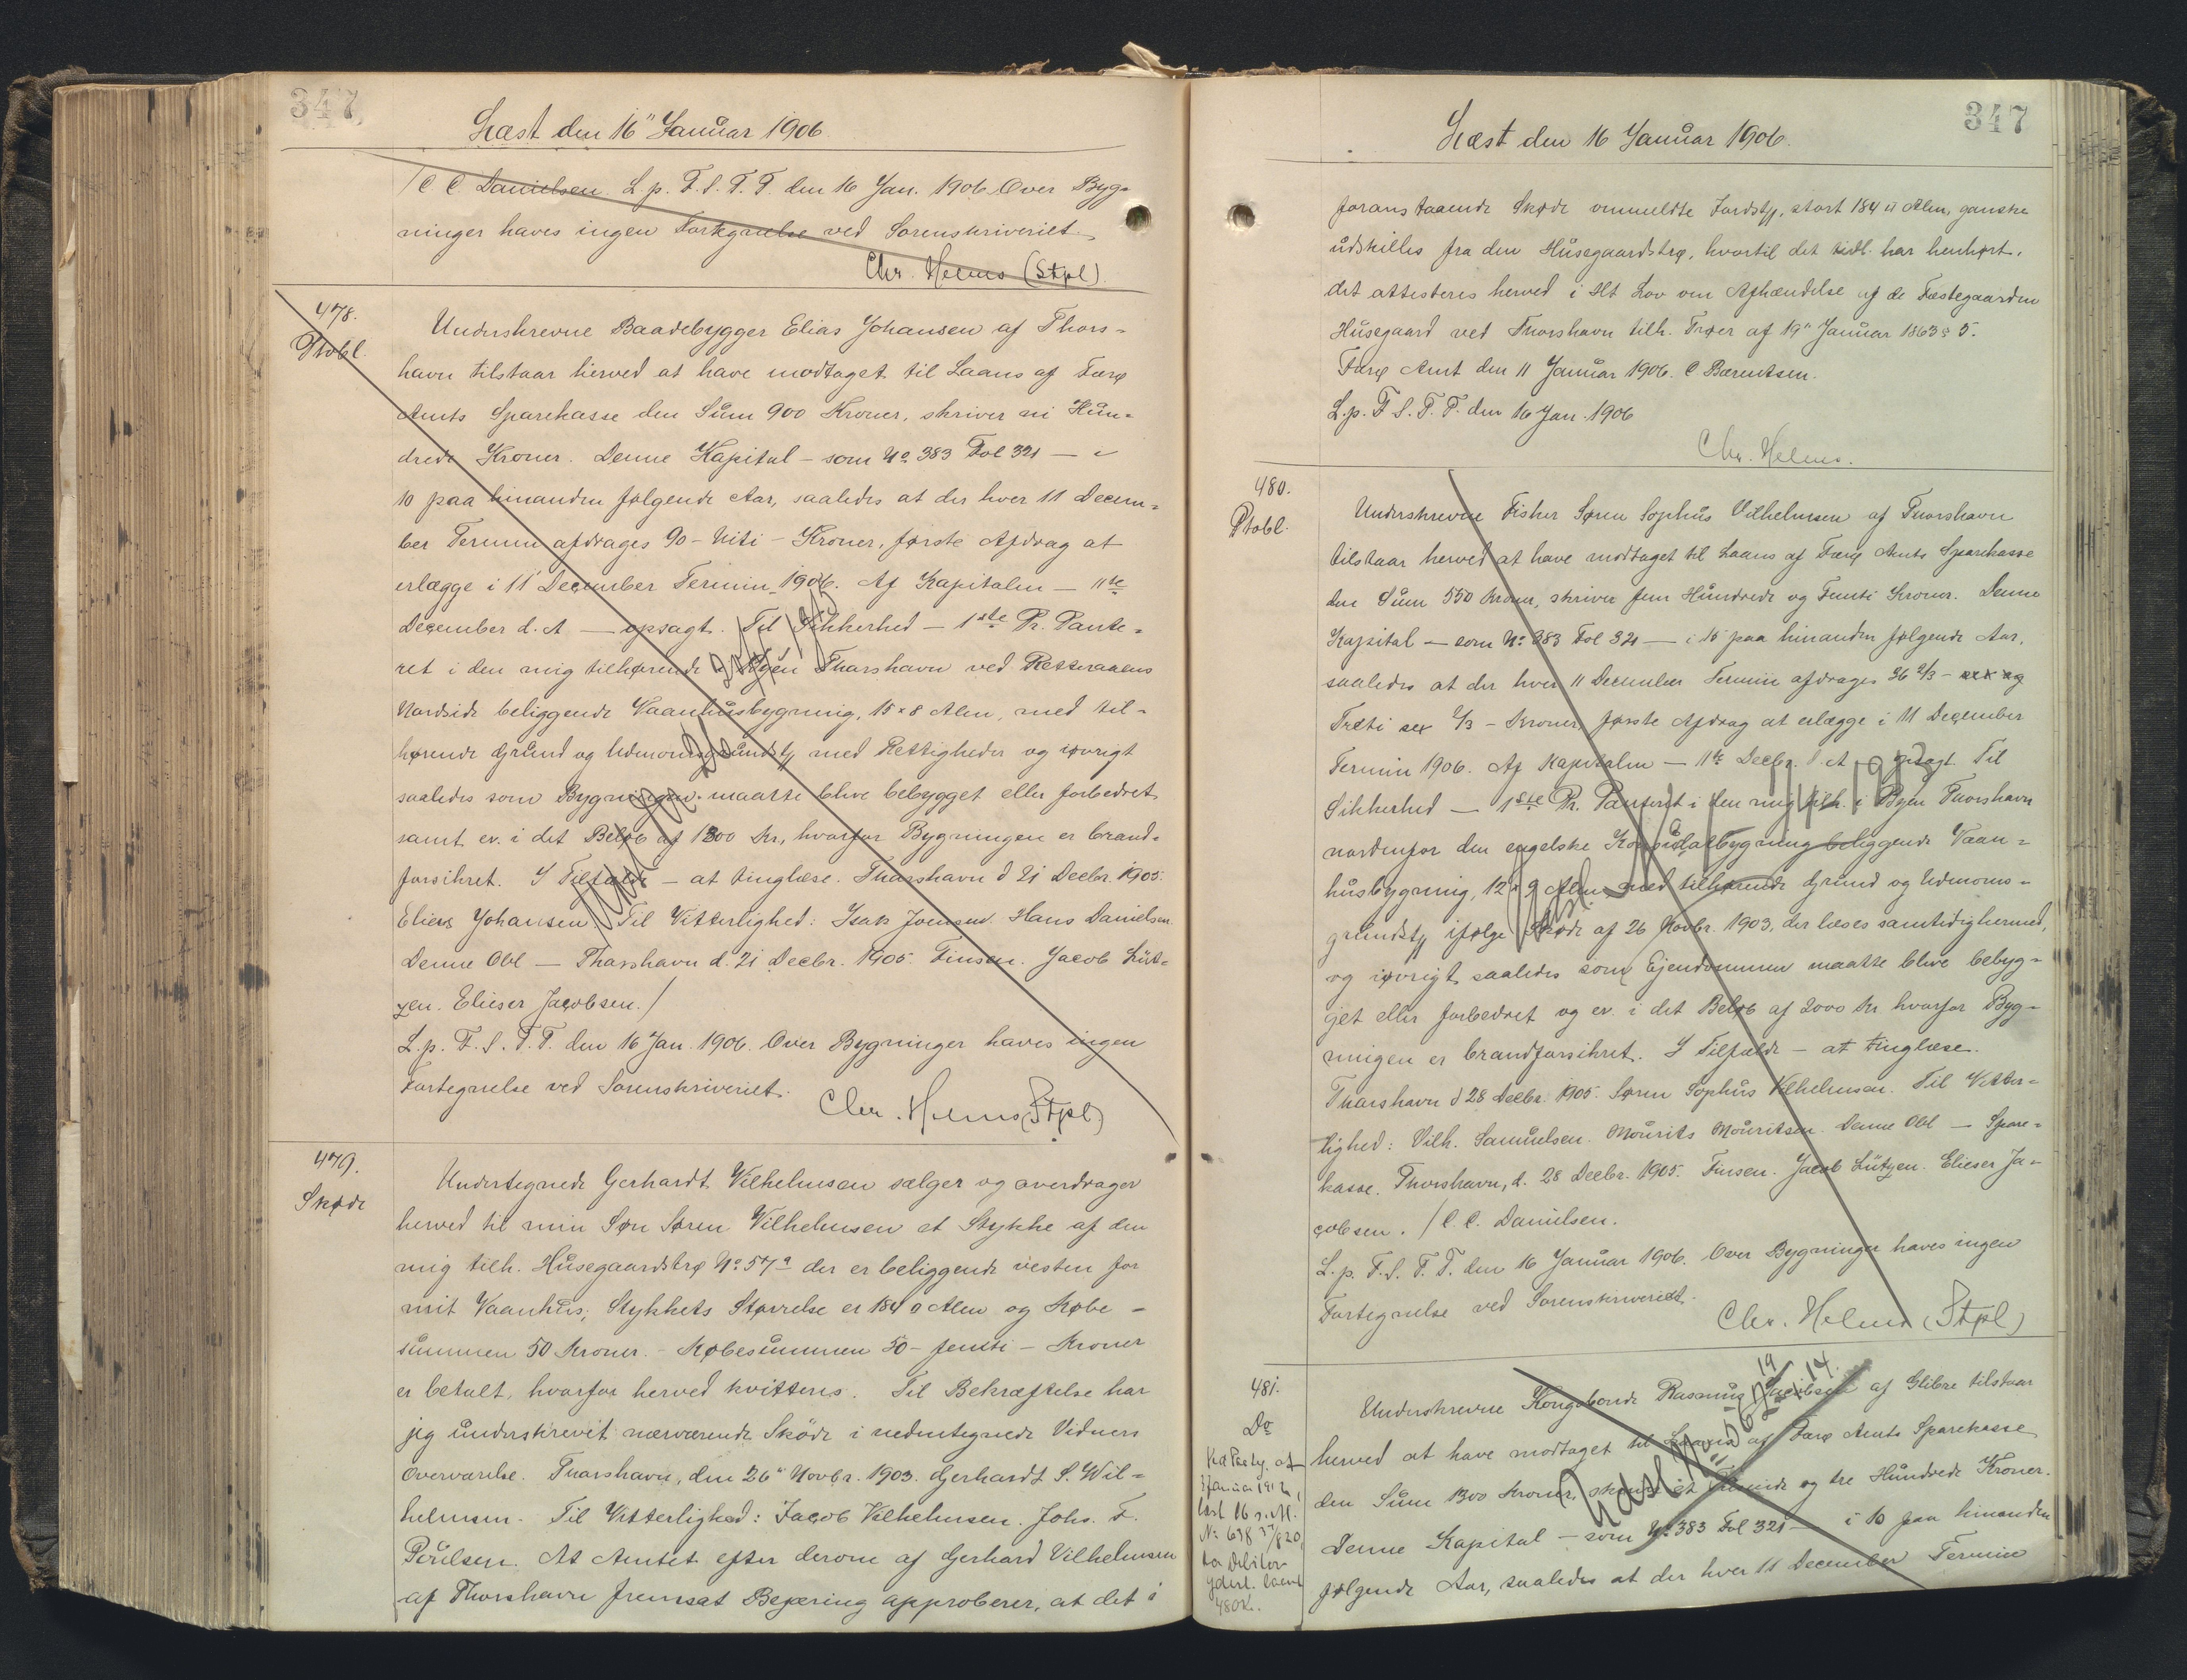 347
Læst den 16" Januar 1906.
/ C C. Danielsen. L. p. F. S. T. T. den 16 Jan. 1906. Over Byg-
ninger haves ingen Fortegnelse ved Sorenskriveriet.
Chr. Helms (Stpl).
478.
Ptobl.
Underskrevne Baadebygger Elias Johansen af Thors-
havn tilstaar herved at have modtaget til Laans af Færø
Amts Sparekasse den Sum 900 Kroner, skriver ni Hun-
drede Kroner. Denne Kapital - som No 383 Fol 321 — i
10 paa hinanden følgende Aar, saaledes at der hver 11 Decem-
ber Termin afdrages 90 - Niti - Kroner, første Afdrag at
erlægge i 11 December Termin 1906. Af Kapitalen — 11te
December d. A — opsagt. Til Sikkerhed — 1ste Pr. Pante-
ret i den mig tilhørende i Byen Thorshavn ved
Nordside beliggende Vaanhusbygning, 15 x 8 Alen, med til-
hørende Grund og Udmomsgrundst/ med Rettigheder og iøvrigt
saaledes som Bygningen maatte blive bebygget eller forbedret
samt ev. i det Beløb af 1300 Kr., hvorfor Bygningen er brand-
forsikret. I Tilfælde — at tinglæse. Thorshavn d 21 Decbr. 1905.
Elias Johansen. Til Vitterlighed: Isak Joensen. Hans Danielsen.
Denne Obl — Thorshavn d. 21 Decbr. 1905. Finsen. Jacob Lüt-
zen. Elieser Jacobsen. /
L. p. F. S. T. T. den 16 Jan. 1906. Over Bygninger haves ingen
Fortegnelse ved Sorenskriveriet.
Chr. Helms (Stpl)
479.
Skøde
Undertegnede Gerhardt Vilhelmsen sælger og overdrager
herved til min Søn Søren Vilhelmsen et Stykke af den
mig tilh. Husegaardstrø No 57a der er beliggende vesten for
mit Vaanhus; Stykkets Størrelse er 184 □ Alen og Købe-
summen 50 Kroner. - Købesummen 50 - femti - Kroner
er betalt, hvorfor herved kvitteres. Til Bekræftelse har
jeg underskrevet nærværende Skøde i nedentegnede Vidners
Overværelse. Thorshavn, den 26" Novbr. 1903. Gerhardt S. Wil-
helmsen. Til Vitterlighed: Jacob Vilhelmsen. Johs. F.
Poulsen. At Amtet efter derom af Gerhard Vilhelmsen
af Thorshavn fremsat Begæring approberer, at det i
347
Læst den 16 Januar 1906.
foranstaaende Skøde ommeldte Jordst/, stort 184 □ Alen, ganske
udskilles fra den Husegaardstrø, hvortil det tidl. har henhørt,
det attesteres herved i Hlt Lov om Afhændelse af de Fæstegaarden
Husegaard ved Thorshavn tilh. Trøer af 19" Januar 1863 § 5.
Færø Amt den 11 Januar 1906. C Bærentsen.
L. p. F. S. T. T. den 16 Jan. 1906
Chr. Helms.
480.
Ptobl.
Underskrevne Fisker Søren Sophus Vilhelmsen af Thorshavn
tilstaar herved at have modtaget til Laans af Færø Amts Sparekasse
den Sum 550 Kroner, skriver fem Hundrede og Femti Kroner. Denne
Kapital — som No 383 Fol 321 — i 15 paa hinanden følgende Aar,
saaledes at der hver 11 December Termin afdrages 36 2/3 - sex og
Treti sex 2/3 - Kroner, første Afdrag at erlægge i 11 December
Termin 1906. Af Kapitalen — 11te Decbr. d. A — opsagt. Til
Sikkerhed — 1ste Pr. Panteret i den mig tilh. i Byen Thorshavn
nordenfor den engelske Konsulatbygning beliggende Vaan-
husbygning, 12 x 9 Alen med tilhørende Grund og Udmoms-
grundst/ ifølge Skøde af 26 Novbr. 1903, der læses samtidig hermed,
og iøvrigt saaledes som Ejendommen maatte blive bebyg-
get eller forbedret og ev. i det Beløb af 2000 Kr hvorfor Byg-
ningen er brandforsikret. I Tilfælde — at tinglæse.
Thorshavn d 28 Decbr. 1905. Søren Sophus Vilhelmsen. Til Vitter-
lighed: Vilh. Samuelsen. Mourits Mouritsen. Denne Obl — Spare-
kasse. Thorshavn, d. 28 Decbr. 1905. Finsen. Jacob Lützen. Elieser Ja-
cobsen. / C. C. Danielsen.
L. p. F. S. T. T. den 16 Januar 1906. Over Bygninger haves ingen
Fortegnelse ved Sorenskriveriet.
Chr. Helms (Stpl)
481.
Do
Underskrevne Kongsbonde Rasmus Jacobsen af Glibre tilstaar
herved at have modtaget til Laans af Færø Amts Sparekasse
den Sum 1300 Kroner, skriver et Tusinde og tre Hundrede Kroner.
Denne Kapital — som No 383 Fol 321 — i 10 paa hinanden
følgende Aar, saaledes at der hver 11 December Termin